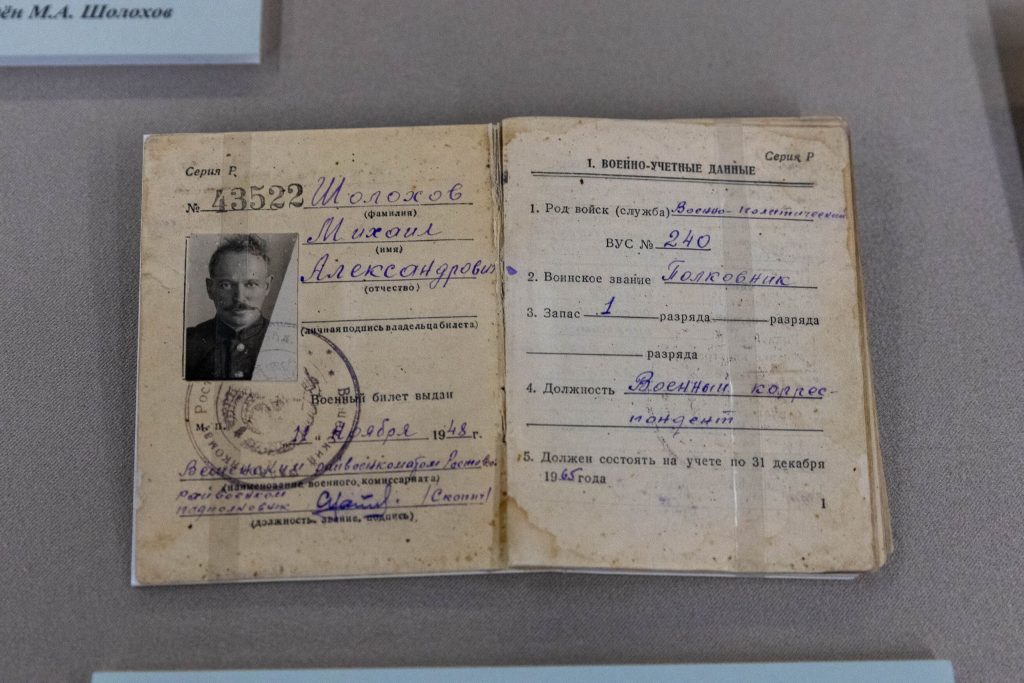 ён М.А. Шолохов
Серия Р
№ 43522 Шолохов
(фамилия)
Михаил
(имя)
Александрович
(отчество)
(личная подпись владельца билета)
Военный билет выдан
М. П. 11 " ноября 1948 г.
Вешенским райвоенкоматом Ростовск
(наименование военного комиссариата)
райвоенком
подполковник /Скопин/
(должность, звание, подпись)
Серия Р
1. ВОЕННО-УЧЕТНЫЕ ДАННЫЕ
1. Род войск (служба) Военно-политический
ВУС № 240
2. Воинское звание Полковник
3. Запас 1 разряда разряда
разряда
4. Должность Военный коррес-
пондент
5. Должен состоять на учете по 31 декабря
1965 года
1